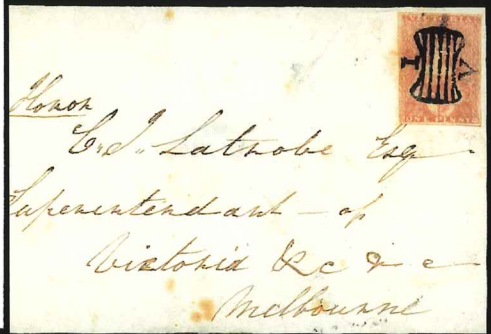 VICTORIA
1 V
ONE PENNY
Honor
C. J. Latrobe Esq
Superentendant - of
Victoria &c &c
Melbourne